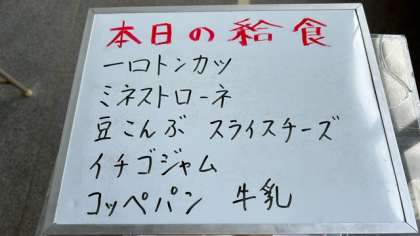 本日の給食
一口トンカツ
ミネストローネ
豆こんぶ スライスチーズ
イチゴジャム
コッペパン 牛乳